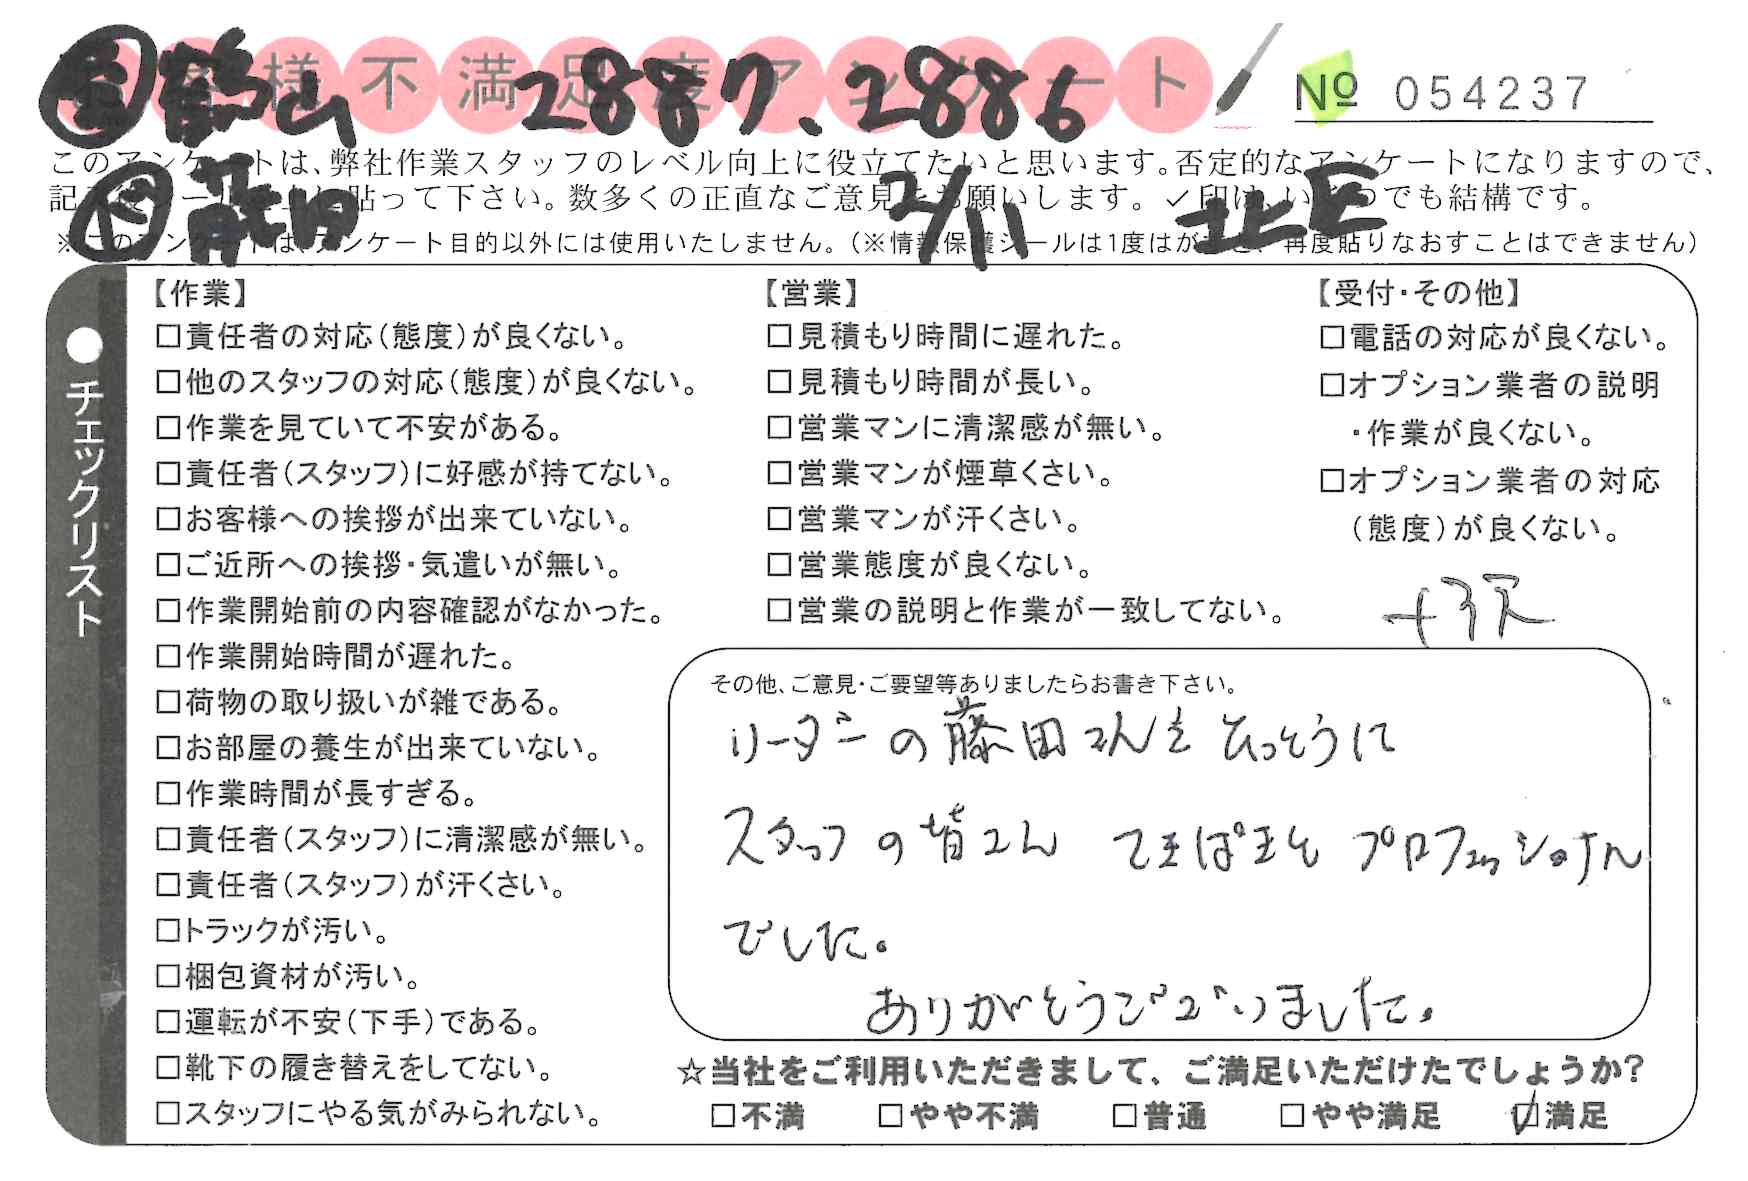 お客様不満足度アンケート
㊤ 鶴山 2887、2886
№ 054237
このアンケートは、弊社作業スタッフのレベル向上に役立てたいと思います。否定的なアンケートになりますので、
記入後シールを上に貼って下さい。数多くの正直なご意見をお願いします。✓印は、いくつでも結構です。
㊦ 藤田 2/11 北区
※このアンケートは、アンケート目的以外には使用いたしません。（※情報保護シールは1度はがすと、再度貼りなおすことはできません）
●チェックリスト
【作業】
□責任者の対応（態度）が良くない。
□他のスタッフの対応（態度）が良くない。
□作業を見ていて不安がある。
□責任者（スタッフ）に好感が持てない。
□お客様への挨拶が出来ていない。
□ご近所への挨拶・気遣いが無い。
□作業開始前の内容確認がなかった。
□作業開始時間が遅れた。
□荷物の取り扱いが雑である。
□お部屋の養生が出来ていない。
□作業時間が長すぎる。
□責任者（スタッフ）に清潔感が無い。
□責任者（スタッフ）が汗くさい。
□トラックが汚い。
□梱包資材が汚い。
□運転が不安（下手）である。
□靴下の履き替えをしてない。
□スタッフにやる気がみられない。
【営業】
□見積もり時間に遅れた。
□見積もり時間が長い。
□営業マンに清潔感が無い。
□営業マンが煙草くさい。
□営業マンが汗くさい。
□営業態度が良くない。
□営業の説明と作業が一致してない。
【受付・その他】
□電話の対応が良くない。
□オプション業者の説明
・作業が良くない。
□オプション業者の対応
（態度）が良くない。
その他、ご意見・ご要望等ありましたらお書き下さい。
リーダーの藤田さんをせっとうに
スタッフの皆さん てきぱきと プロフェッショナル
でした。
ありがとうございました。
☆当社をご利用いただきまして、ご満足いただけたでしょうか?
□不満 □やや不満 □普通 □やや満足 ☑満足